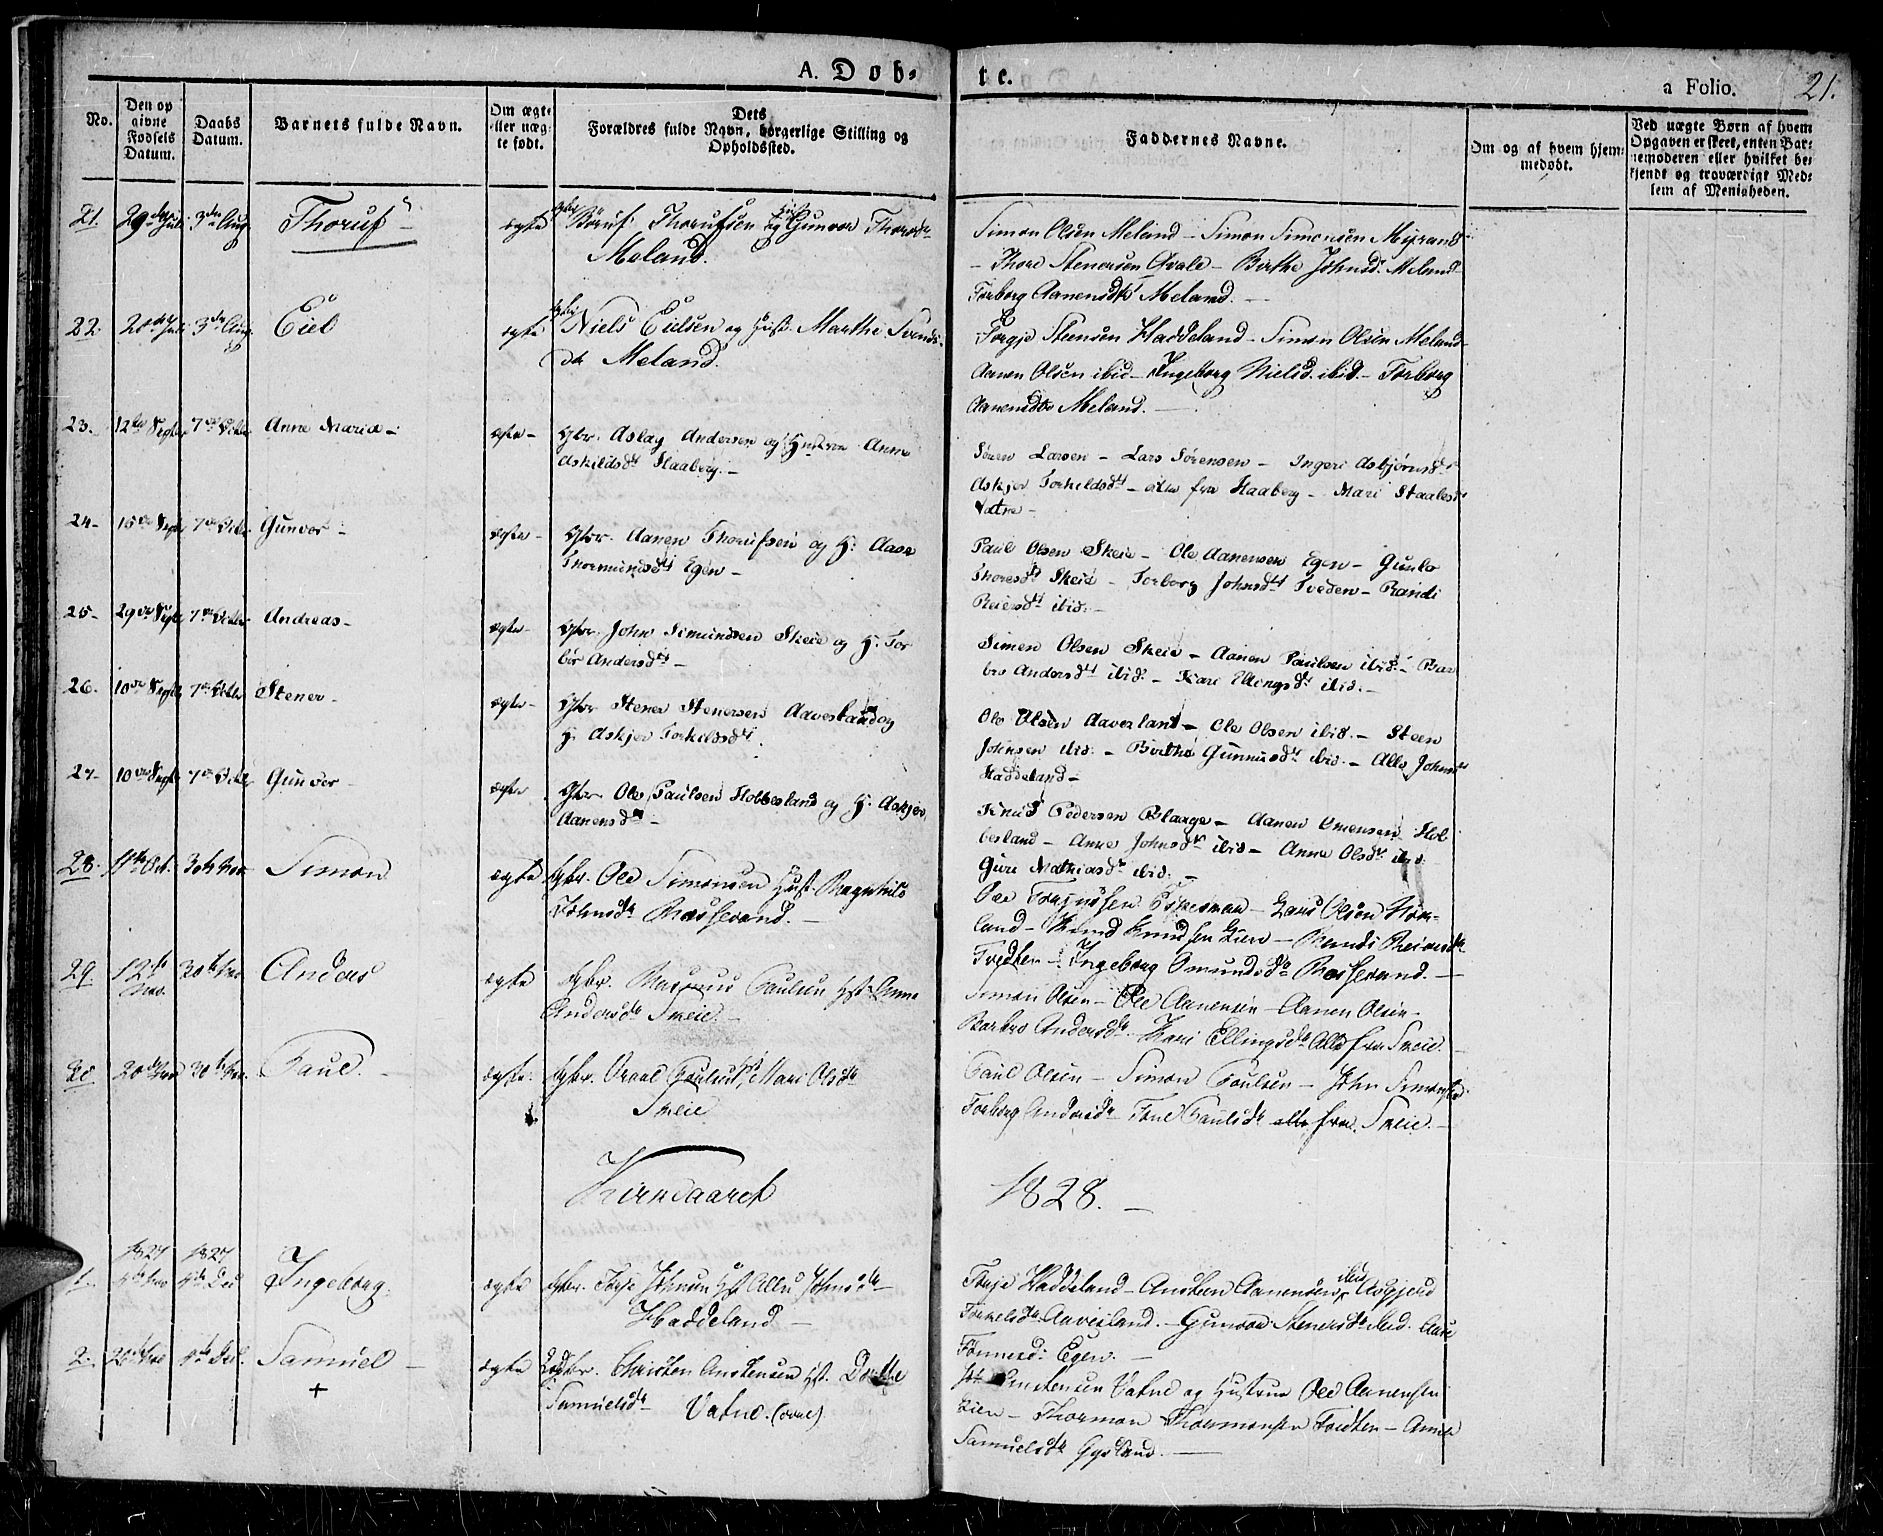 A. Dob-
te.
a Folio.
21.
No.
Den op
givne
Fødsels
Datum.
Daabs
Datum.
Barnets fulde Navn.
Om ægte
eller uæg-
te født.
Dets
Forældres fulde Navn, borgerlige Stilling og
Opholdssted.
Faddernes Navne.
Om og af hvem hjem-
medøbt.
Ved uægte Børn af hvem
Opgaven er skeet, enten Bar-
nemoderen eller hvilket be-
kjendt og troværdigt Med-
lem af Menigheden.
21. 29de Juli 3de Aug. Thoruf ægte Gunvor
Meland.
Simon Olsen Meland - Simon Simonsen Myrand
- Thore Stenersen Qvale - Birthe Johnsd. Meland
Torborg Aanensdtr Meland. -
22. 20de Juli 3de Aug. Eiel ægte Niels Eielsen og Hust. Marthe Svends-
dtr Meland.
Torgje Steensen Haddeland - Simon Olsen Meland -
Aanen Olsen ibid - Ingeborg Nielsd. ibid. - Torborg
Aanensdtr Meland. -
23. 12te Septr 7de Octbr Anne Maria - ægte - Gbr. Aslag Andersen og Hustrue Anne
Askildsdt Haaberg. -
Sören Larsen - Lars Sörensen - Ingeri Asbjörnsdt
Askjer Torkildsdt - alle fra Haaberg - Mari Staalesdt
Vatne -
24 - 15de Septr 7de Octbr Gunvor - ægte - Gbr. Aanen Thorufsen og H. Aase
Thormundsdt Egen -
Paul Olsen Skeie - Ole Aanensen Egen - Gunlo
Thoresdt Skeie - Torborg Johnsdt Tveden - Randi
Reiersdt ibid. -
25 - 29de Septr 7de Octbr Andreas - ægte - Gbr. John Simundsen Skeie og H. Tor
bör Andersdt -
Simen Olsen Skeie - Aanen Paulsen ibid. - Bar
bro Andersdt ibid. - Kari Ellingsdt ibid. -
26. 10de Septr 7de Octbr Stener - ægte - Gbr Stener Stenersen Aavesland og
H. Askjer Torkildsdt.
Ole Olsen Aaverland - Ole Olsen ibid. - Steen
Johnsen ibid. - Birthe Gunnursdt ibid. - Alle Johnsdt
Haddeland -
27 - 10de Septr 7de Octbr Gunvor - ægte Gbr. Ole Paulsen Hobbesland og H. Askjer
Aanensdt -
Knud Pedersen Blaage - Aanen Omensen Hob
besland - Anne Johnsdtr ibid - Anne Olsdtr ibid
Guri Mathiasdtr ibid. -
28. 11te Oct. 30te Nov. Simon ægte Gbr. Ole Simonsen Hust. Ragnhild
Johnsdtr Rosserand. -
Lars Olsen
land - Knud Knudsen Lien - Randi Reiersdtr
Tvedten - Ingeborg Omundsdtr Rosserand. -
29 12te
Nov. 30te Nov. Anders ægte Gbr. Rasmus Paulsen Hst. Anne
Andersdtr Skeie. -
Simon Olsen - Ole Aanensen - Aanen Olsen -
Barbro Andersdtr. Kari Ellingsdtr Alle fra Skeie. -
30 20de Nov 30te Nov. Paul. - ægte. Gbr. Mari Olsdtr
Skeie
Paul Olsen - Simon Poulsen - John Simonsen
Torborg Andersdtr - Paulsdtr alle fra Skeie. -
Kirkeaaret
1828. -
1827 1827
1. 9de Dec Ingeborg. ægte Gbr. Torje Johnsen Hst. Johnsdtr -
Haddeland -
Torje Haddeland - Aansten Aanensen ibid, Asgjerd
Torkelsdtr Aavesland. - Gunvor Stenersdtr ibid. Aase
Tommesd: Egen. -
2. 26de Nov 9de Dec. Samuel - ægte Christen Anstensen Hst. Dorthe
Samuelsdtr - Vatne. (Øvre)
+
Anstensen Vatne og Hustrue Ole Aanensen
Lien - Thormon Thormonsen Tvedten - Anne
Samuelsdtr Gysland. -